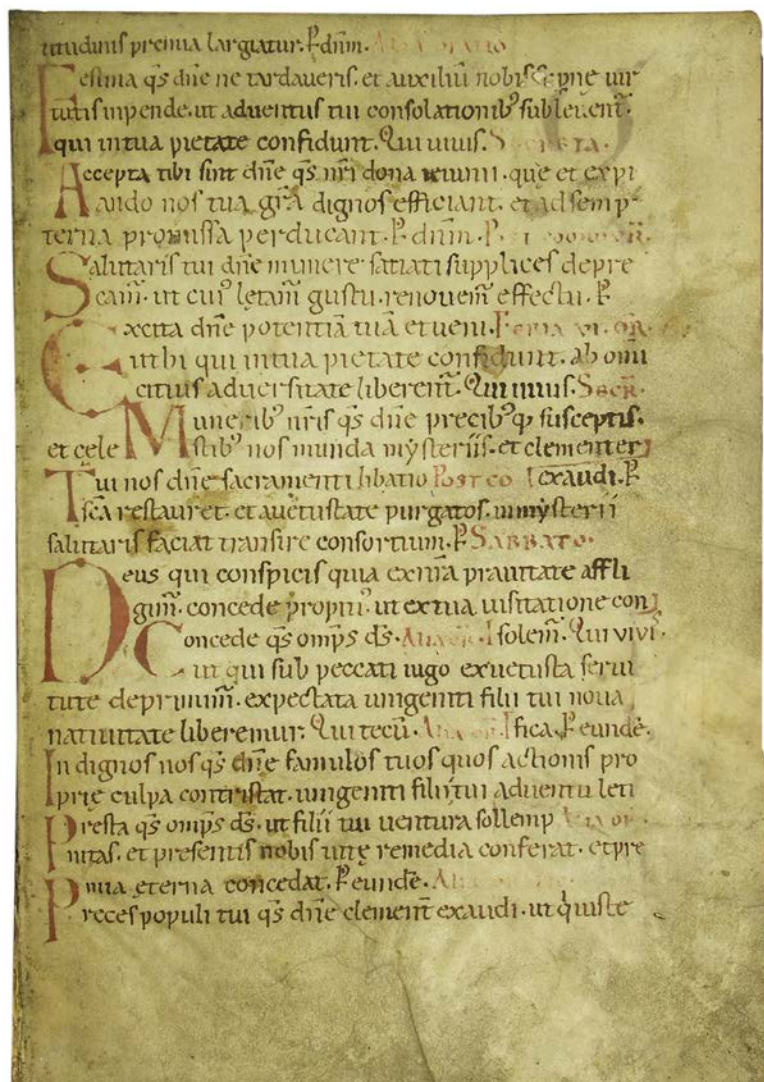 titudinis premia largiatur. P dnm. Alia oratio
Festina qs dne ne tardaveris. et auxiliũ nobis supne uir
tutis inpende. ut adventus tui consolationibꝰ subleuent̃.
qui in tua pietate confidunt. Qui uiuis. Secreta.
Accepta tibi sint dne qs nr̃i dona ieiunii. que et expi
ando nos tua gr̃a dignos efficiant. et ad semp
terna promissa perducant. P dnm. P
Salutaris tui dne munere satiati supplices depre
cam̃. ut cuiꝰ letam̃ gustu. renouem̃ effectu. P
Excita dne potentiã tuã et ueni. Feria vi. or.
ut hi qui in tua pietate confidunt. ab omi
citius adversitate liberent̃. Qui uiuis. Secr.
Muneribꝰ nr̃is qs dne precibꝰq susceptis.
et cele stibꝰ nos munda mysteriis. et clementer
Tui nos dne sacramenti libatio Post co exaudi. P
sc̃a restauret. et a uetustate purgatos. in mysterii
salutaris faciat transire consortium. P Sabbato.
Deus qui conspicis quia ex nr̃a prauitate affli
gim̃. concede propitiꝰ. ut ex tua uisitatione con
Concede qs omps ds. Alia or. solem̃. Qui vivi.
ut qui sub peccati iugo ex uetusta serui
tute deprimim̃. expectata unigeniti filii tui noua
natiuitate liberemur. Qui tecũ. Alia or. fica. P eundẽ.
In dignos nos qs dne famulos tuos quos actionis pro
prie culpa contristat. unigeniti filii tui aduentu leti
Presta qs omps ds. ut filii tui uentura sollemp Alia or.
nitas. et presentis nobis uitę remedia conferat. et pre
mia eterna concedat. P eundẽ.
Preces populi tui qs dne clement̃ exaudi. ut qui iuste